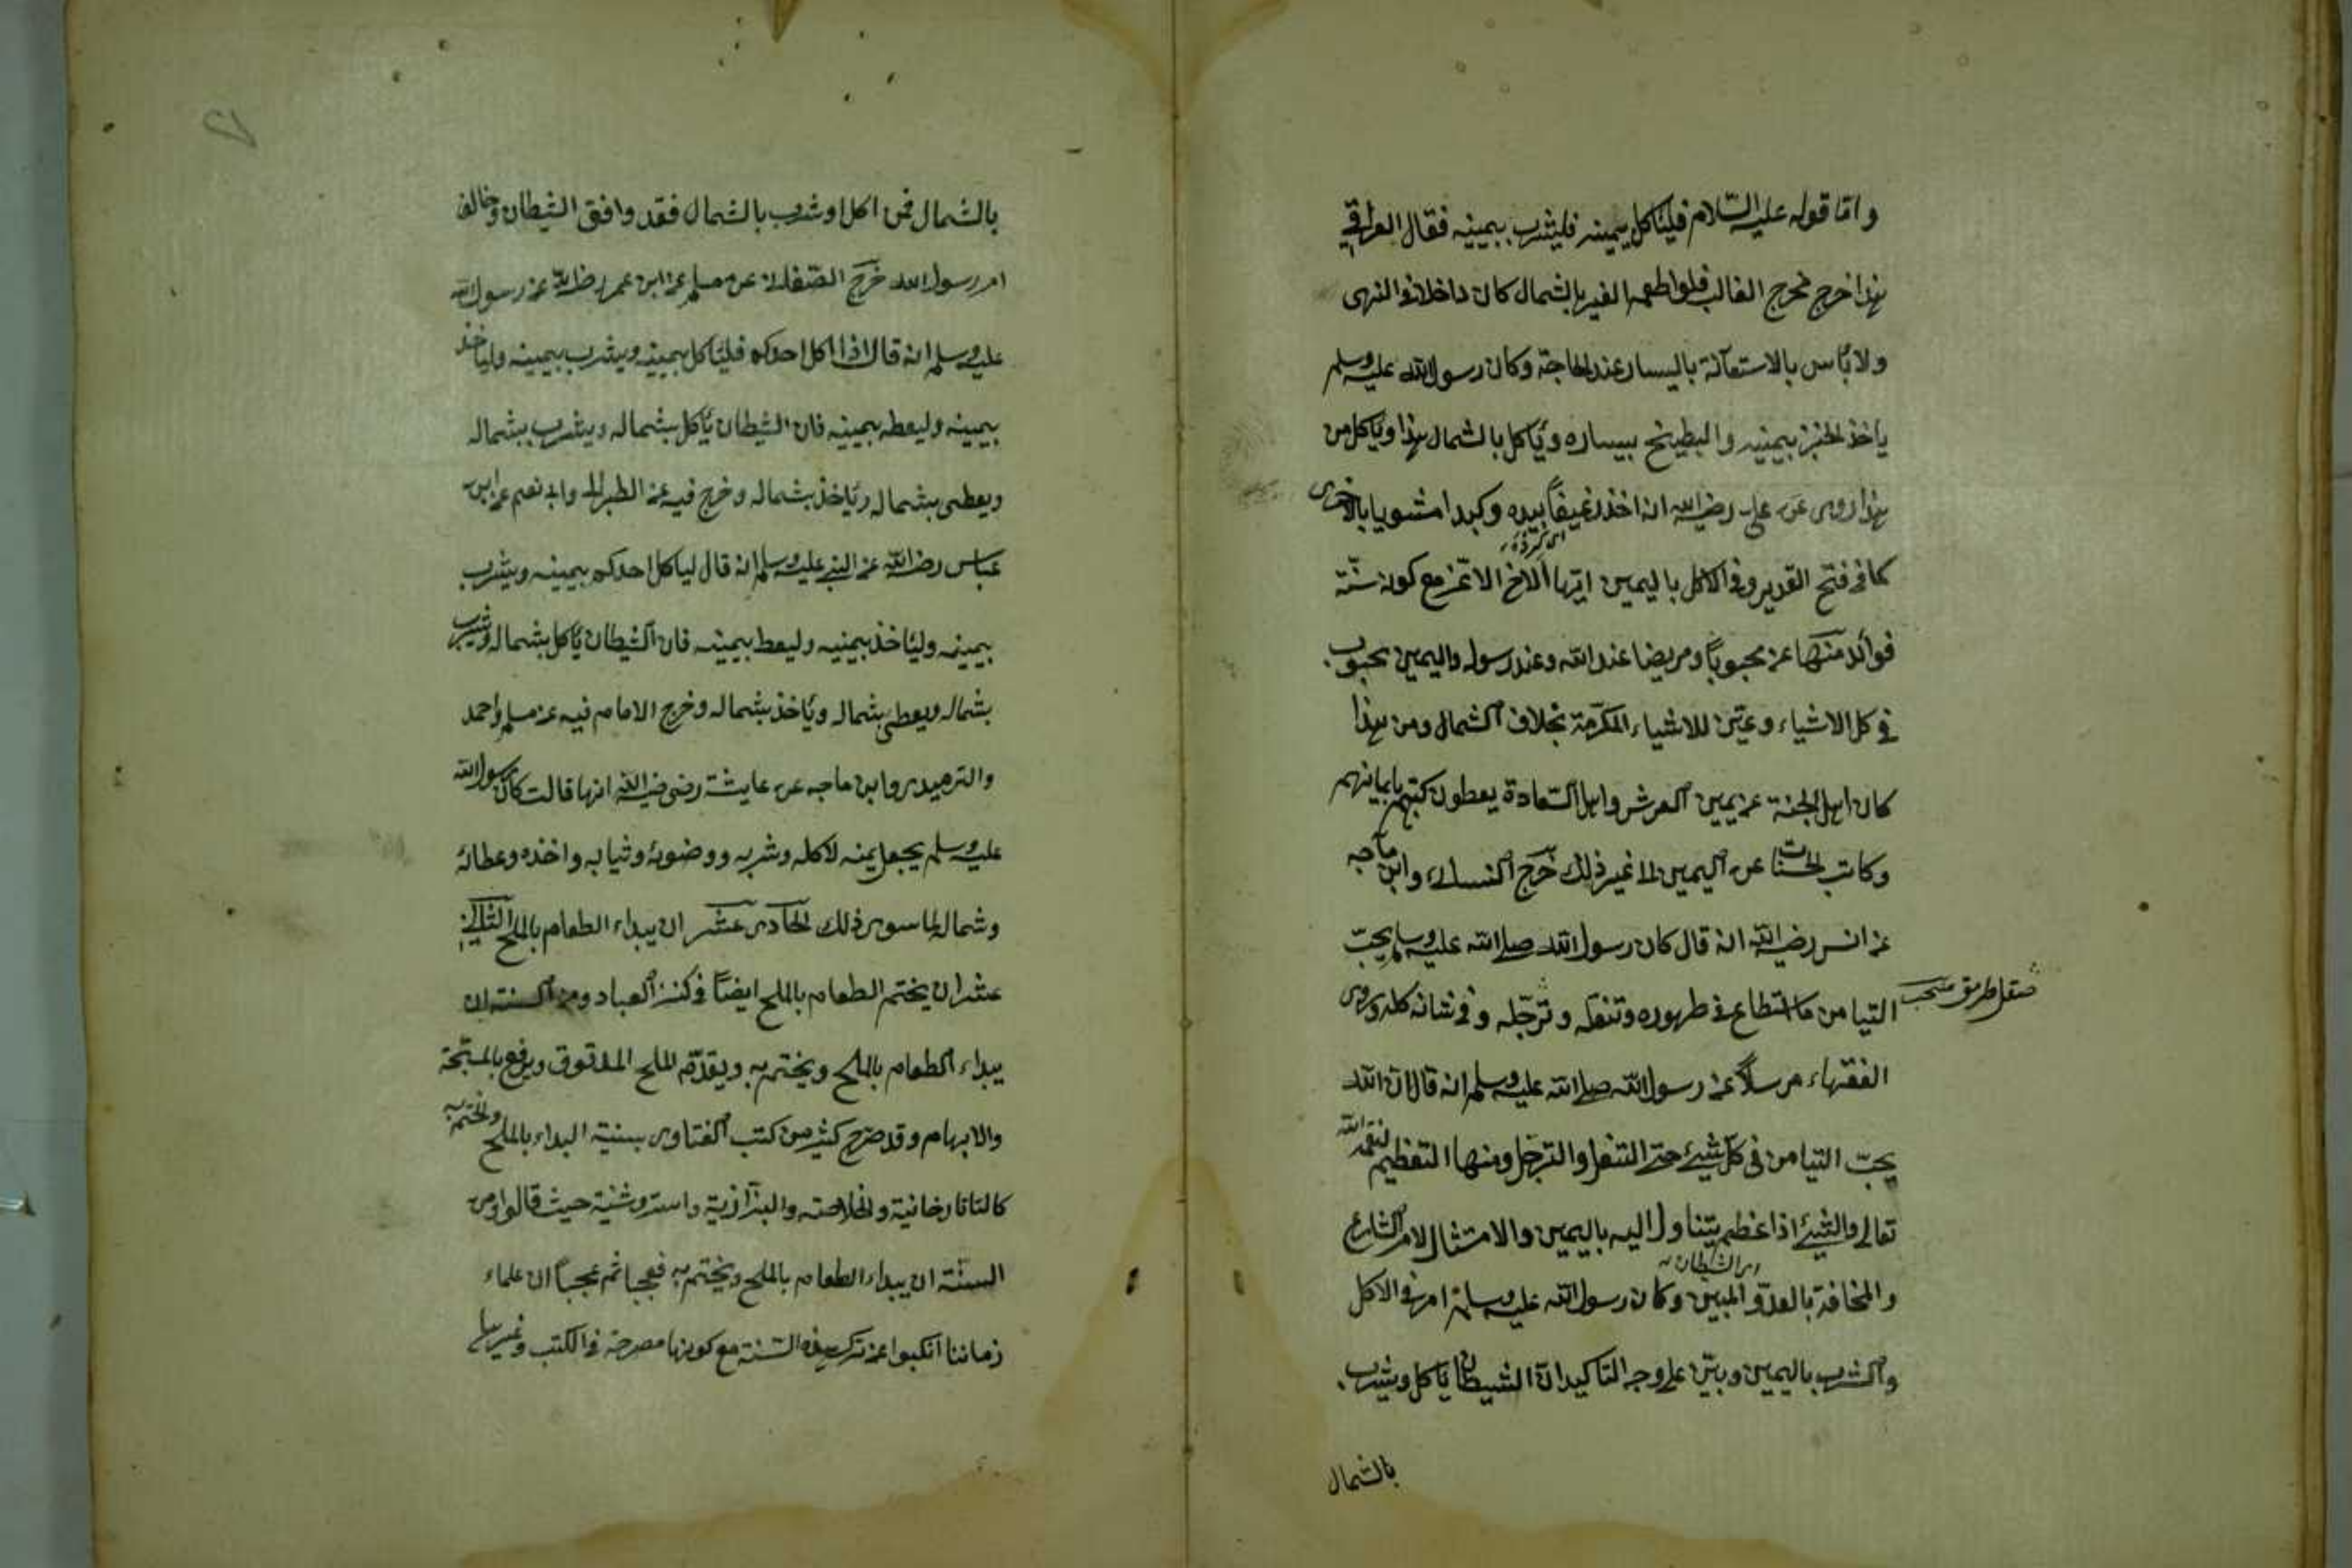 واما قوله عليه السلام فليأكل بيمينه فليشرب بيمينه فقال العراقي
هذا خرج مخرج الغالب فلو اطعمه الغير بالشمال كان داخلا في النهى
ولا بأس بالاستعانة باليسار عند الحاجة وكان رسول الله عليه وسلم
ياخذ الخبز بيمينه والبطيخ بيساره ويأكل بالشمال هذا ويأكل من
هذا روى عن على رضي الله انه اخذ رغيفاً بيده وكبدا مشويا بالاخرى
كما في فتح القدير وفي الاكل باليمين ايها الاخ الاعز مع كونه سنّة
فوائد منها عن محبوباً ومريضا عند الله وعند رسوله واليمين محبوب
في كل الاشياء وعيّن للاشياء المكرّمة بخلاف الشمال ومن هذا
كان اهل الجنة عن يمين العرش واهل السعادة يعطون كتبهم بايمانهم
وكاتب الحسنات عن اليمين الا غير ذلك خرج النسائى وابن ماجه
عن انس رضي الله انه قال كان رسول الله صلى الله عليه وسلم يحبّ
التيامن ما استطاع في طهوره وتنعله وترجّله وفي شانه كله وروى
الفقهاء مرسلاً عن رسول الله صلى الله عليه وسلم انه قال ان الله
يحبّ التيامن في كل شيئ حتى التنعل والترجل ومنها التعظيم لنعمة الله
تعالى والشيئ اذا عظم يتناول اليه باليمين والامتثال لامر الشارع
والمخافة بالعدوّ المبين وكان رسول الله عليه وسلم امر في الاكل
اى الشيطان
والشرب باليمين وبيّن على وجه التاكيد انّ الشيطان يأكل ويشرب
بالشمال
بالشمال فمن اكل او شرب بالشمال فقد وافق الشيطان وخالف
امر رسول الله خرج عن مسلم عن ابن عمر رضي الله عن رسول الله
عليه وسلم انه قال اذا اكل احدكم فليأكل بيمينه ويشرب بيمينه وليأخذ
بيمينه وليعطه بيمينه فان الشيطان يأكل بشماله ويشرب بشماله
ويعطى بشماله ويأخذ بشماله وخرج فيه عن الطبرانى وابى نعيم عن ابن
عباس رضي الله عن النبي عليه وسلم انه قال لياكل احدكم بيمينه ويشرب
بيمينه وليأخذ بيمينه وليعط بيمينه فان الشيطان يأكل بشماله ويشرب
بشماله ويعطى بشماله ويأخذ بشماله وخرج الامام فيه عن مسلم واحمد
والترميدى وابن ماجه عن عايشة رضى رضي الله انها قالت كان رسول الله
عليه وسلم يجعل يمينه لاكله وشربه ووضوئه وثيابه واخذه وعطائه
وشماله لما سوى ذلك الحادى عشر ان يبداء الطعام بالملح الثانى
عشر ان يختم الطعام بالملح ايضاً في كنز العباد ومن السنة ان
يبداء الطعام بالملح ويختم به ويقدّم الملح المدقوق ويرفع بالمسبّحة
والابهام وقد صرح كثير من كتب الفتاوى بسنية البداء بالملح والختم به
كالتاتارخانية والخلاصة والبزازية واستروشنية حيث قالوا ومن
السنّة ان يبداء الطعام بالملح ويختم به فعجبا ثم عجباً ان علماء
زماننا انكبوا عن ترك هذه السنة مع كونها مصرحة في الكتب وغيرها